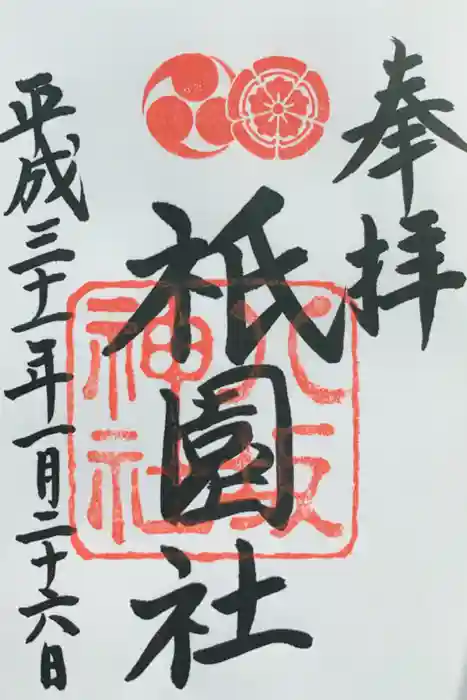 奉拝
祇園社
八坂
神社
平成三十一年一月二十六日